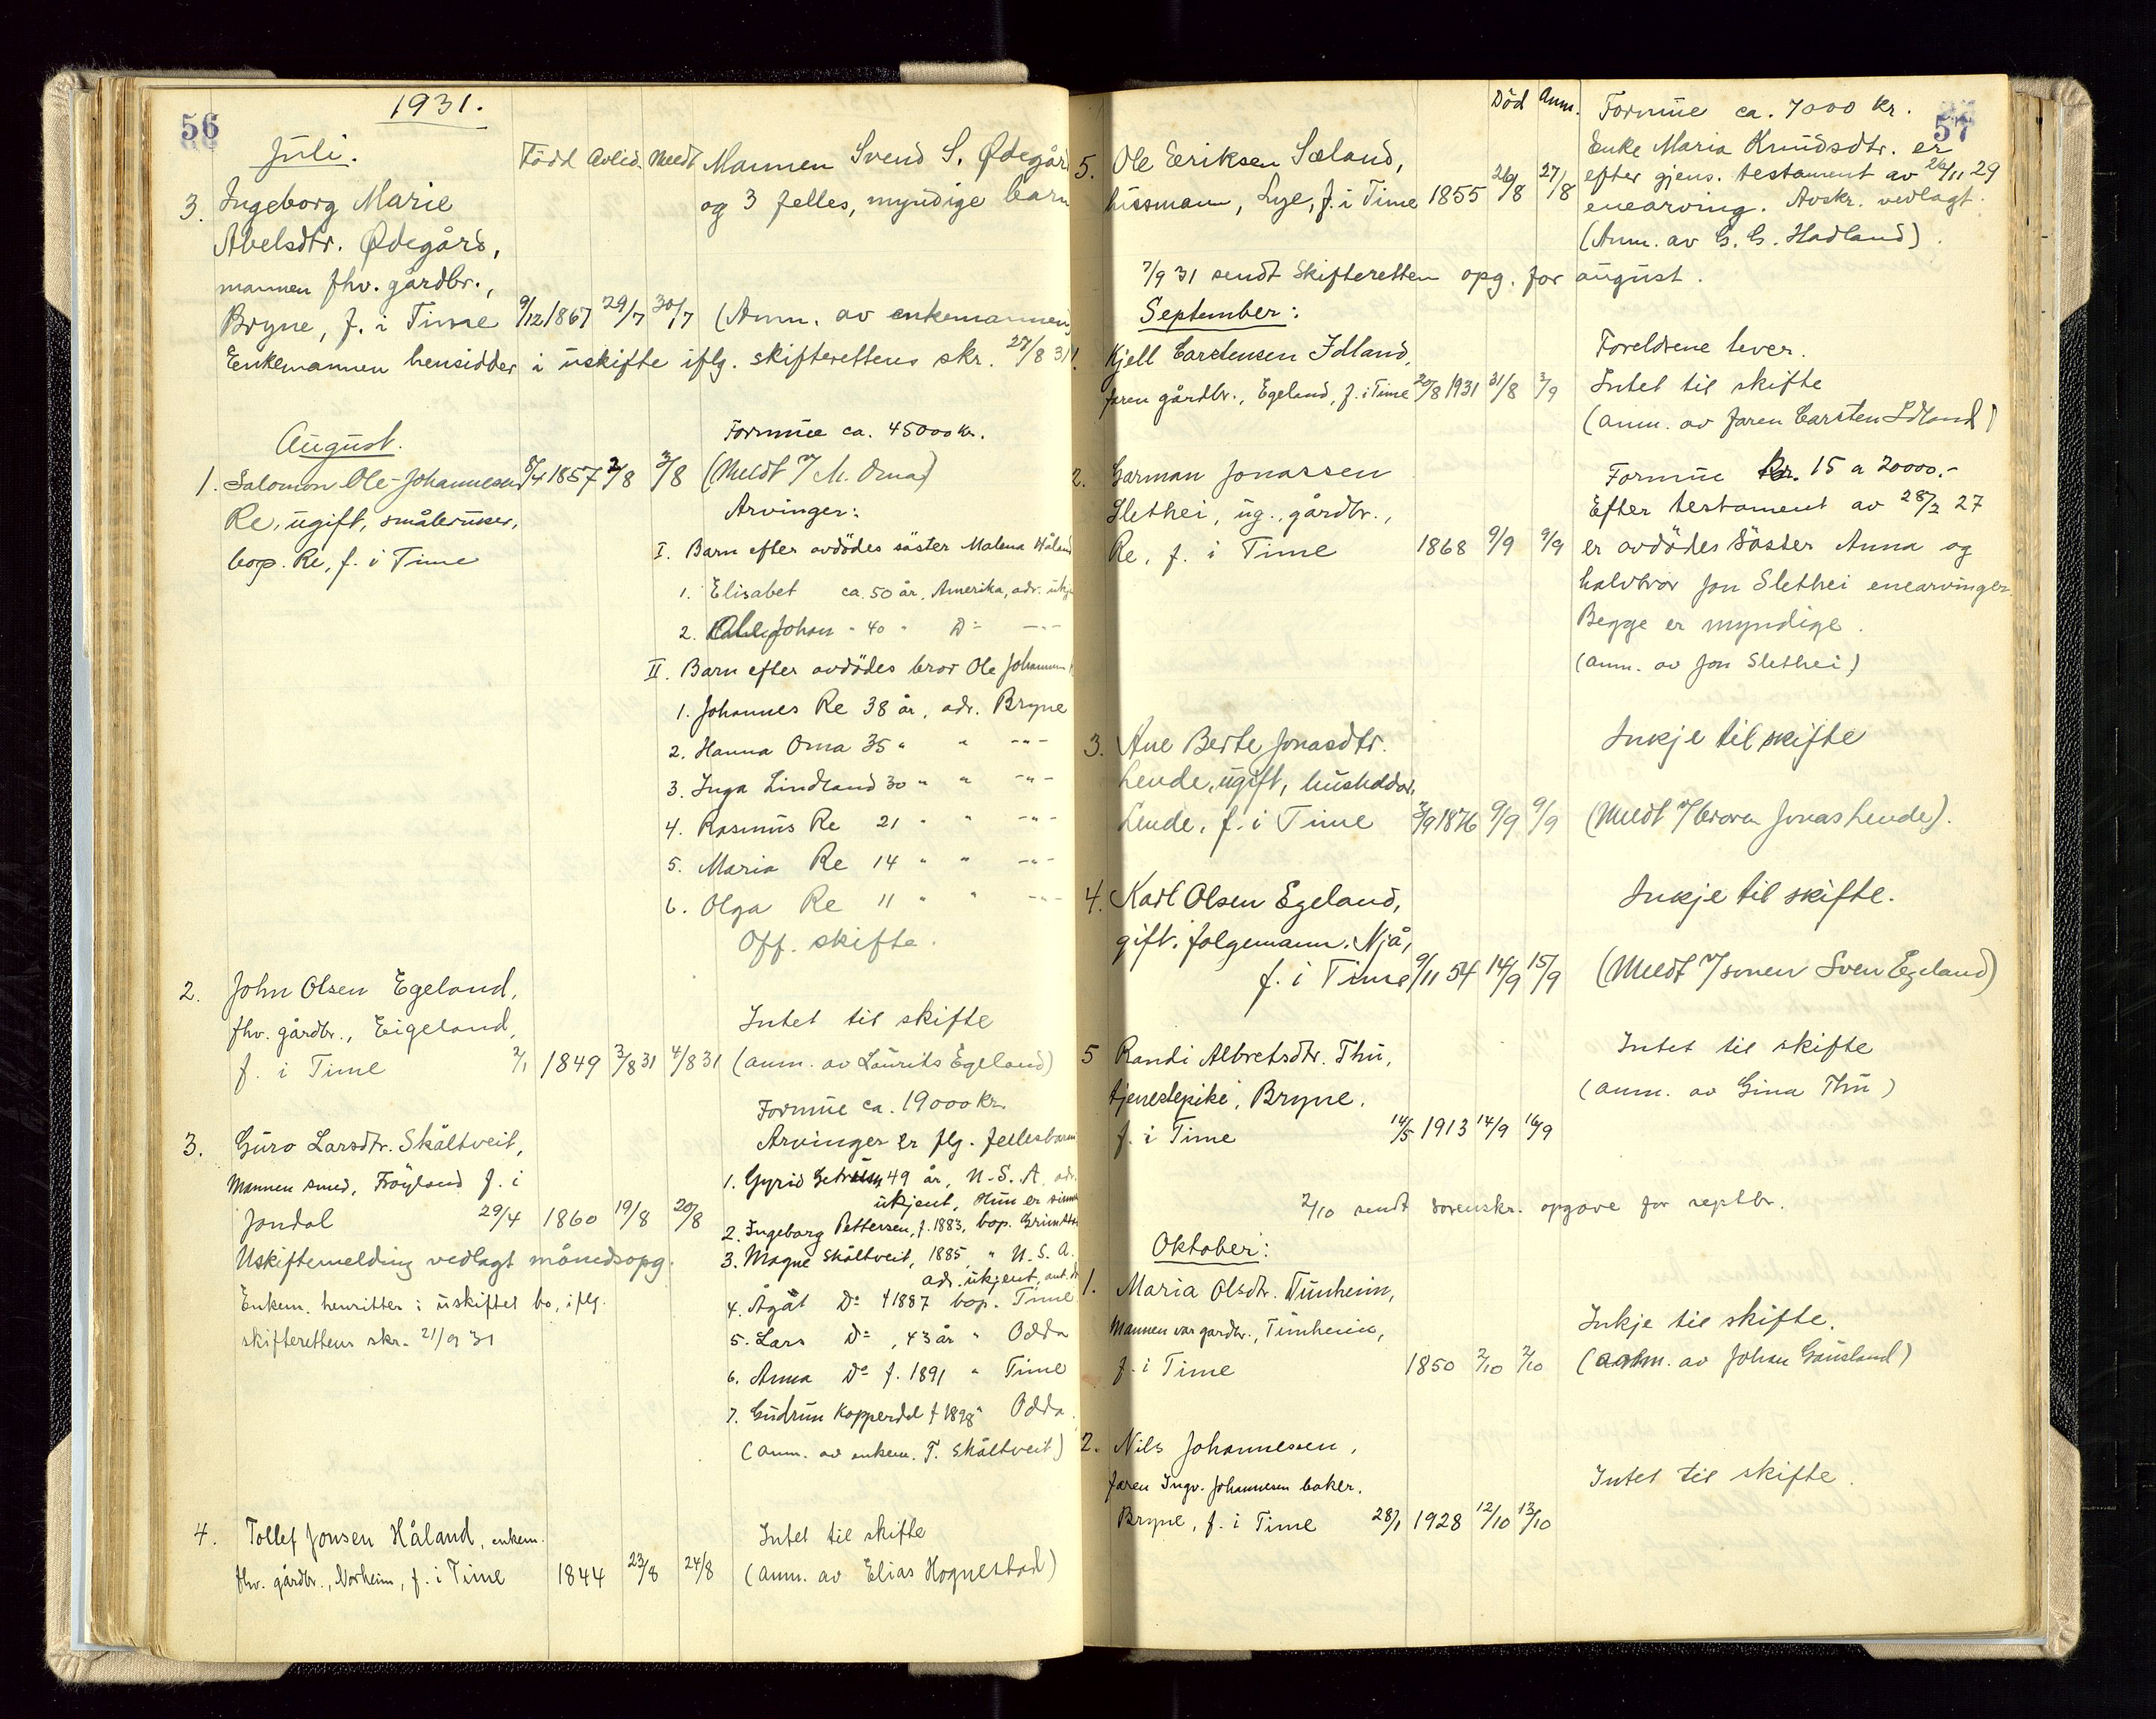 56
1931.
Juli.
Född Avlid. Meldt
3. Ingeborg Marie
Abelsdtr. Ødegård,
mannen fhv. gårdbr.,
Bryne, f. i Time 9/12 1867 29/7 30/7
Mannen Svend S. Ødegård
og 3 felles, myndige barn
(Anm. av enkemannen)
Enkemannen hensidder i uskifte iflg. skifterettens skr. 27/8 31
August.
1. Salomon Ole-Johannesen 8/4 1857 2/8 3/8
Re, ugift, småbruker,
bop. Re, f. i Time
Formue ca. 45000 kr.
(Meldt v/ M. Oma)
Arvinger:
I. Barn efter avdödes söster Malena Håland
1. Elisabet ca. 50 år, Amerika, adr. ukj
2. Johan " 40 " D= -"-
II. Barn efter avdödes bror Ole Johannes
1. Johannes Re 38 år, adr. Bryne
2. Hanna Oma 35 " " -"-
3. Inga Lindland 30 " " -"-
4. Rasmus Re 21 " " -"-
5. Maria Re 14 " " -"-
6. Olga Re 11 " " -"-
Off. skifte.
2. John Olsen Egeland,
fhv. gårdbr., Eigeland,
f. i Time 2/1 1849 3/8 31 4/8 31
Intet til skifte
(anm. av Laurits Egeland)
3. Guro Larsdtr. Skåltveit,
Mannen smed, Fröyland f. i
Jondal 29/4 1860 19/8 20/8
Uskiftemelding vedlagt månedsopg.
Enkem. hensitter i uskiftet bo, iflg.
skifterettens skr. 21/9 31
Formue ca. 19000 kr.
Arvinger er flg. fellesbarn
1. Gyrid 49 år, U.S.A. adr.
ukjent, Hun er
2. Ingeborg Pettersen, f. 1883, bop.
3. Magne Skåltveit, 1885, " U.S.A.
adr. ukjent,
4. Ågåt D= f 1887 bop. Time
5. Lars D= , 43 år " Odda
6. Anna D= f. 1891 " Time
7. Gudrun Kopperdal f 1898 " Odda
(anm. av enkem. T. Skåltveit)
4. Tollef Jonsen Håland, enkem.
fhv. gårdbr., Norheim, f. i Time 1844 23/8 24/8
Intet til skifte
(anm. av Elias Hognestad)
57
Död Anm.
5. Ole Eeriksen Sæland,
husmann, Lye, f. i Time 1855 26/8 27/8
Formue ca. 7000 kr.
Enke Maria Knudsdtr. er
efter gjens. testament av 26/11 29
enearving. Avskr. vedlagt.
(Anm. av G. G. Hadland).
7/9 31 sendt Skifteretten opg. for august.
September:
1. Kjell Carstensen Idland,
faren gårdbr., Egeland, f. i Time 20/8 1931 31/8 3/9
Foreldrene lever.
Intet til skifte
(anm. av faren Carsten Idland)
2. Garman Jonassen
Slethei, ug., gårdbr.,
Re, f. i Time 1868 9/9 9/9
Formue kr. 15 a 20000.-
Efter testament av 28/2 27
er avdödes söster Anna og
halvbror Jon Slethei enearvinger.
Begge er myndige.
(anm. av Jon Slethei)
3. Ane Berte Jonasdtr.
Lende, ugift, husholder.
Lende, f. i Time 3/9 1876 9/9 9/9
Inkje til skifte
(Meldt v/ broren Jonas Lende).
4. Karl Olsen Egeland,
gift. folgemann. Njå,
f. i Time 9/11 54 14/9 15/9
Inkje til skifte.
(Meldt v/ sonen Sven Egeland)
5 Randi Albretsdtr. Thu,
tjenestepike, Bryne.
f. i Time 14/5 1913 14/9 16/9
Intet til skifte
(anm. av Gina Thu)
2/10 sendt sorenskr. opgave for septbr.
Oktober:
1. Maria Olsdtr. Tunheim,
Mannen var gardbr., Tunheim,
f. i Time 1850 2/10 2/10
Inkje til skifte.
(anm. av Johan Gausland)
2. Nils Johannessen,
faren Ingv. Johannesen baker.
Bryne, f. i Time 28/1 1928 12/10 13/10
Intet til skifte.